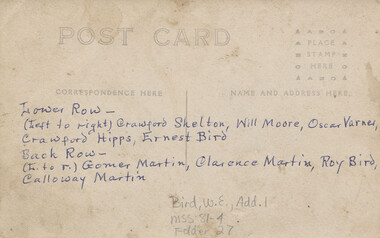 POST CARD
PLACE
STAMP
HERE
CORRESPONDENCE HERE
NAME AND ADDRESS HERE
Lower Row —
(Left to right) Crawford Shelton, Will Moore, Oscar Varner,
Crawford Hipps, Ernest Bird
Back Row —
(L. to r.) Gomer Martin, Clarence Martin, Roy Bird,
Calloway Martin
Bird, W.E., Add. 1
mss 81-4
Folder 27